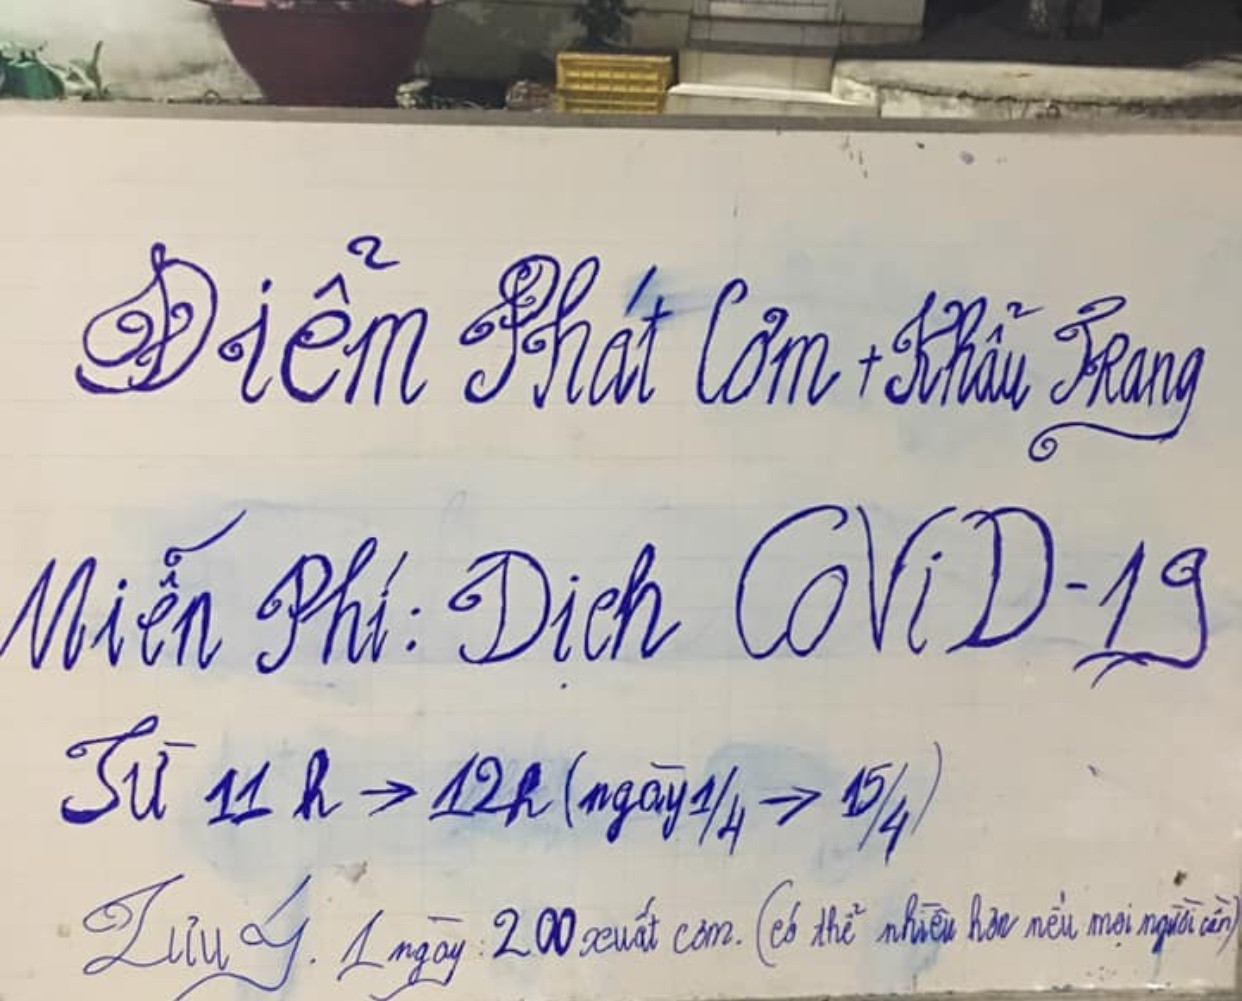 Điểm Phát Cơm + Khẩu Trang
Miễn Phí: Dịch COViD-19
Từ 11h → 12h (ngày 1/4 → 15/4)
Lưu Ý. 1 ngày: 200 xuất cơm. (có thể nhiều hơn nếu mọi người cần)